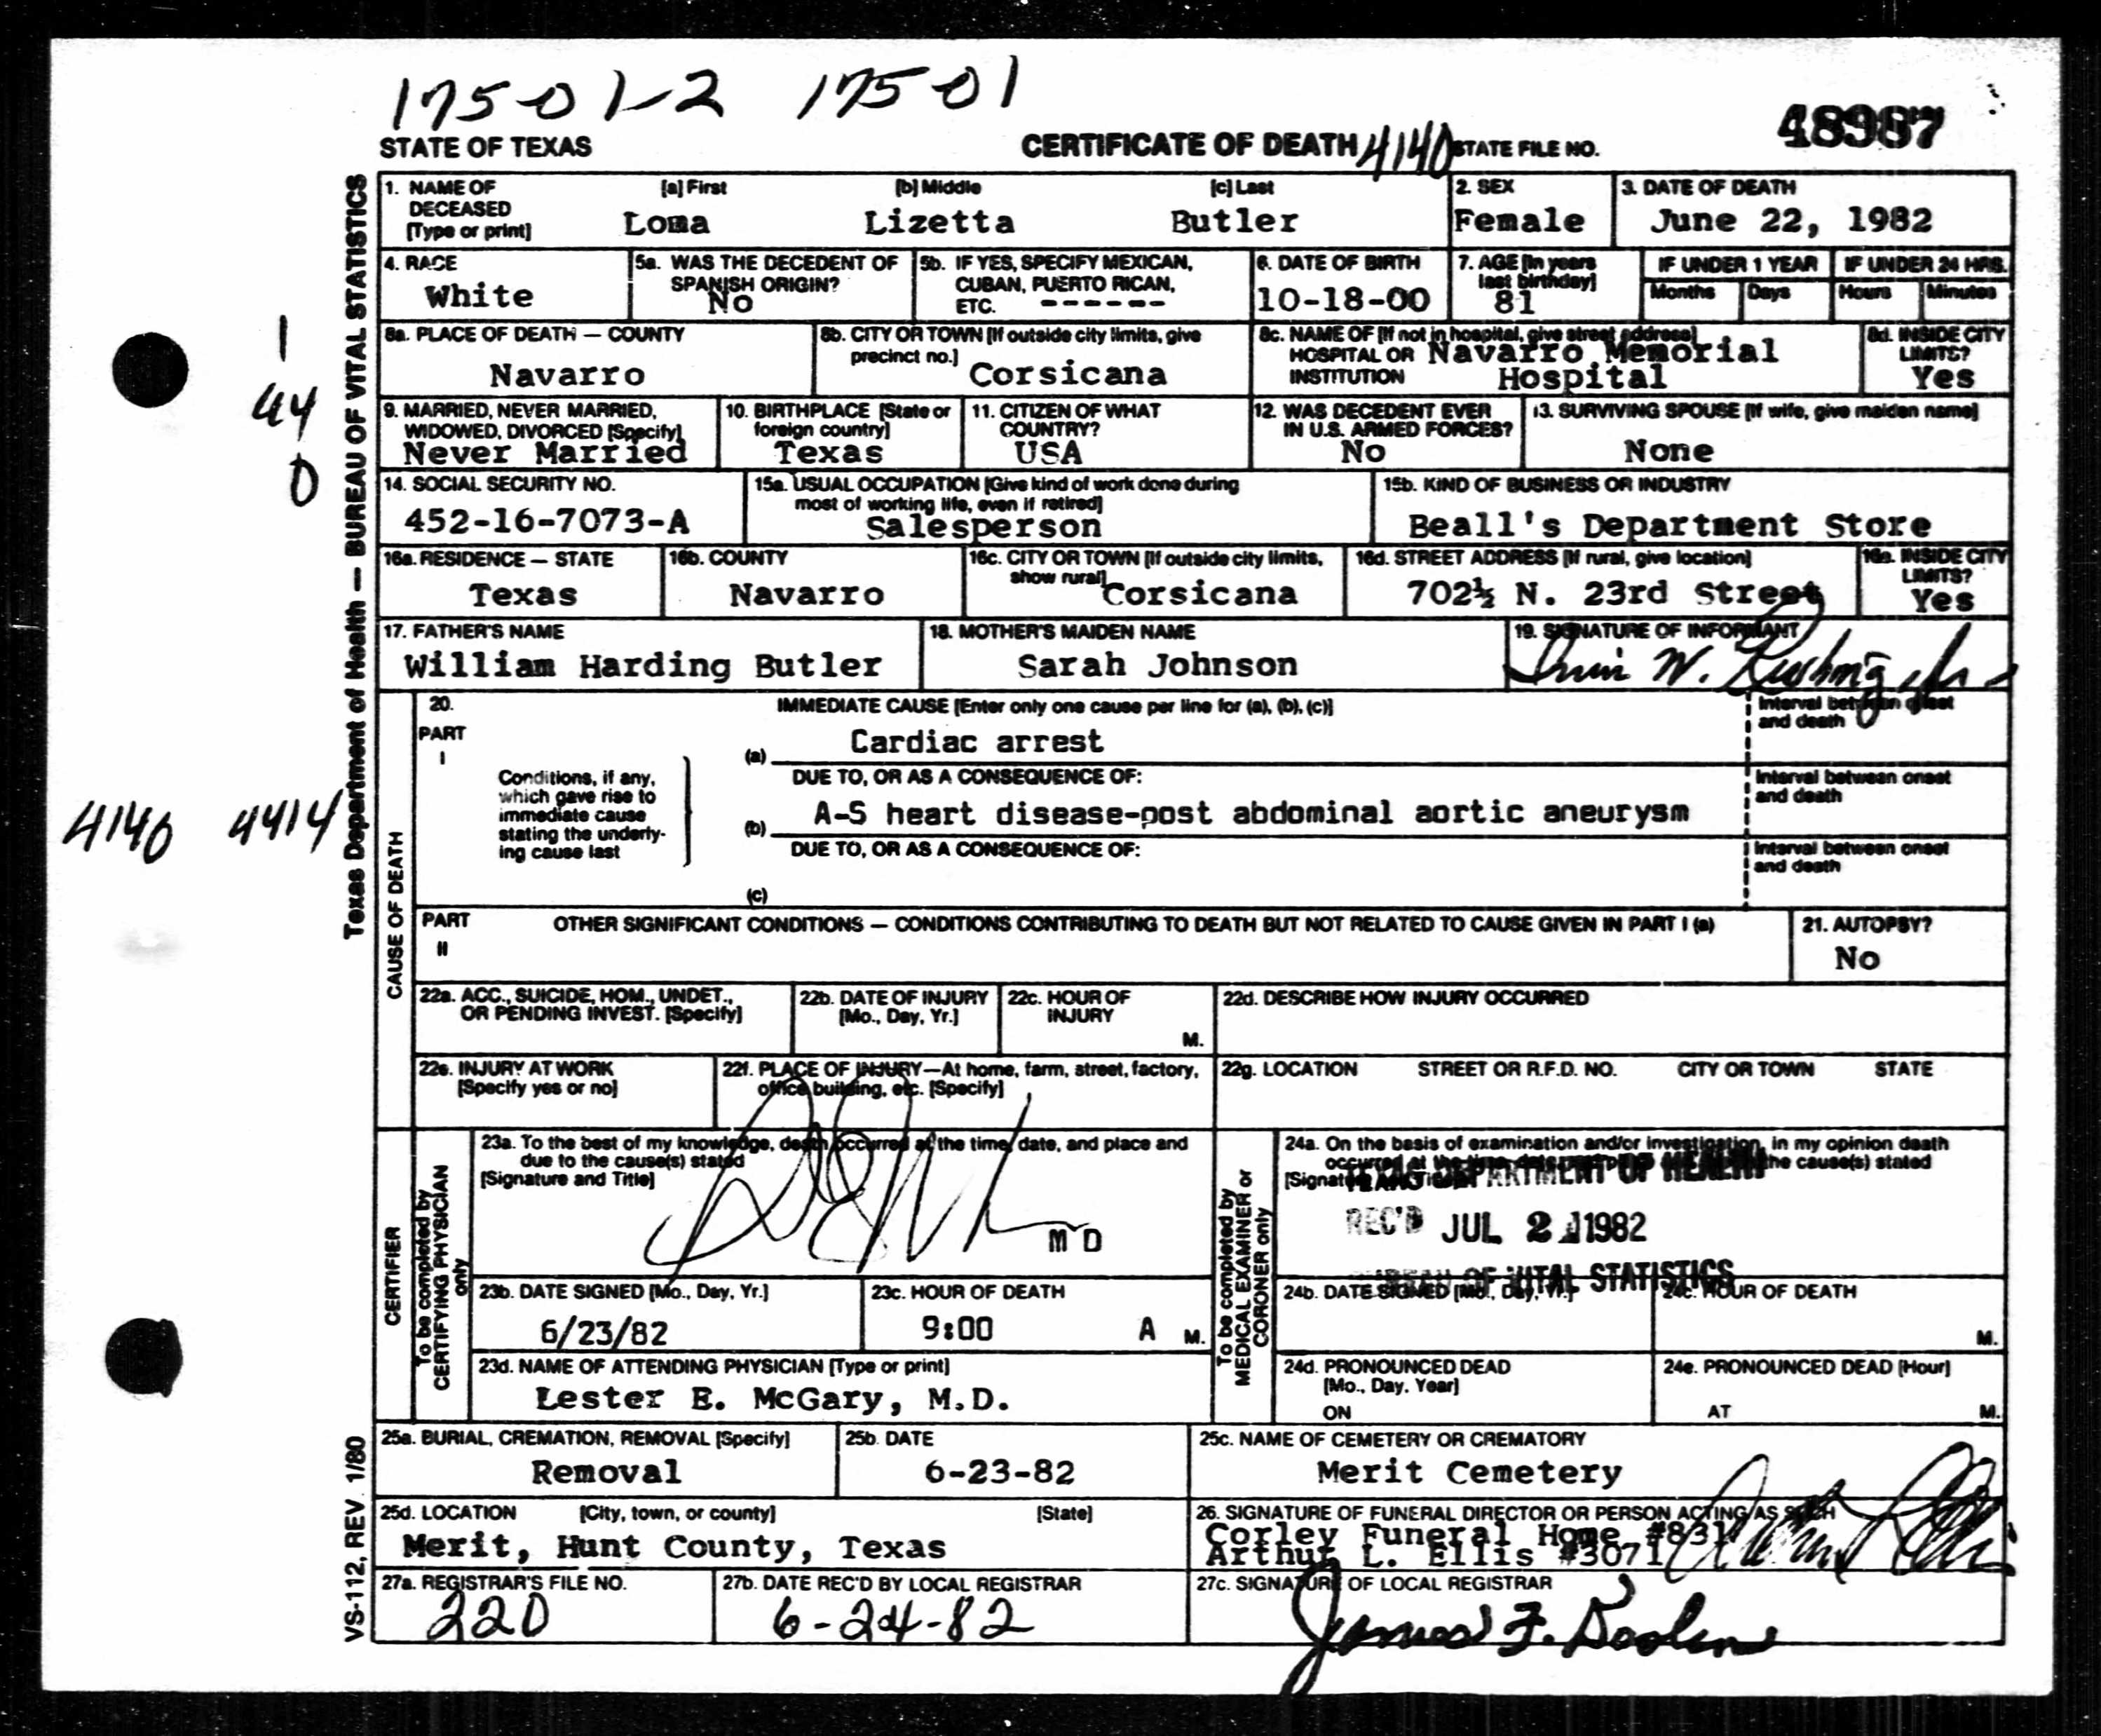 17501-2 17501
STATE OF TEXAS CERTIFICATE OF DEATH 4140 STATE FILE NO. 48987
Texas Department of Health — BUREAU OF VITAL STATISTICS
1. NAME OF DECEASED [Type or print] [a] First [b] Middle [c] Last 2. SEX 3. DATE OF DEATH
Loma Lizetta Butler Female June 22, 1982
4. RACE 5a. WAS THE DECEDENT OF SPANISH ORIGIN? 5b. IF YES, SPECIFY MEXICAN, CUBAN, PUERTO RICAN, ETC. 6. DATE OF BIRTH 7. AGE [In years last birthday] IF UNDER 1 YEAR Months Days IF UNDER 24 HRS. Hours Minutes
White No ------ 10-18-00 81
8a. PLACE OF DEATH — COUNTY 8b. CITY OR TOWN [If outside city limits, give precinct no.] 8c. NAME OF [If not in hospital, give street address] HOSPITAL OR INSTITUTION 8d. INSIDE CITY LIMITS?
Navarro Corsicana Navarro Memorial Hospital Yes
1
44
0
9. MARRIED, NEVER MARRIED, WIDOWED, DIVORCED [Specify] 10. BIRTHPLACE [State or foreign country] 11. CITIZEN OF WHAT COUNTRY? 12. WAS DECEDENT EVER IN U.S. ARMED FORCES? 13. SURVIVING SPOUSE [If wife, give maiden name]
Never Married Texas USA No None
14. SOCIAL SECURITY NO. 15a. USUAL OCCUPATION [Give kind of work done during most of working life, even if retired] 15b. KIND OF BUSINESS OR INDUSTRY
452-16-7073-A Salesperson Beall's Department Store
16a. RESIDENCE — STATE 16b. COUNTY 16c. CITY OR TOWN [If outside city limits, show rural] 16d. STREET ADDRESS [If rural, give location] 16e. INSIDE CITY LIMITS?
Texas Navarro Corsicana 702½ N. 23rd Street Yes
17. FATHER'S NAME 18. MOTHER'S MAIDEN NAME 19. SIGNATURE OF INFORMANT
William Harding Butler Sarah Johnson W. Jr.
CAUSE OF DEATH
20. IMMEDIATE CAUSE [Enter only one cause per line for (a), (b), (c)] Interval between onset and death
PART I
(a) Cardiac arrest
Conditions, if any, which gave rise to immediate cause stating the underlying cause last
DUE TO, OR AS A CONSEQUENCE OF: Interval between onset and death
4140 4414
(b) A-S heart disease-post abdominal aortic aneurysm
DUE TO, OR AS A CONSEQUENCE OF: Interval between onset and death
(c)
PART II OTHER SIGNIFICANT CONDITIONS — CONDITIONS CONTRIBUTING TO DEATH BUT NOT RELATED TO CAUSE GIVEN IN PART I (a) 21. AUTOPSY?
No
22a. ACC., SUICIDE, HOM., UNDET., OR PENDING INVEST. [Specify] 22b. DATE OF INJURY [Mo., Day, Yr.] 22c. HOUR OF INJURY M. 22d. DESCRIBE HOW INJURY OCCURRED
22e. INJURY AT WORK [Specify yes or no] 22f. PLACE OF INJURY—At home, farm, street, factory, office building, etc. [Specify] 22g. LOCATION STREET OR R.F.D. NO. CITY OR TOWN STATE
CERTIFIER
To be completed by CERTIFYING PHYSICIAN only
23a. To the best of my knowledge, death occurred at the time, date, and place and due to the cause(s) stated
[Signature and Title]
MD
23b. DATE SIGNED [Mo., Day, Yr.] 23c. HOUR OF DEATH
6/23/82 9:00 A M.
23d. NAME OF ATTENDING PHYSICIAN [Type or print]
Lester E. McGary, M.D.
To be completed by MEDICAL EXAMINER or CORONER only
24a. On the basis of examination and/or investigation, in my opinion death occurred at the time, date, the cause(s) stated
[Signature and Title]
TEXAS DEPARTMENT OF HEALTH
REC'D JUL 2 1982
BUREAU OF VITAL STATISTICS
24b. DATE SIGNED [Mo., Day, Yr.] 24c. HOUR OF DEATH M.
24d. PRONOUNCED DEAD [Mo., Day, Year] ON 24e. PRONOUNCED DEAD [Hour] AT M.
25a. BURIAL, CREMATION, REMOVAL [Specify] 25b. DATE 25c. NAME OF CEMETERY OR CREMATORY
Removal 6-23-82 Merit Cemetery
25d. LOCATION [City, town, or county] [State] 26. SIGNATURE OF FUNERAL DIRECTOR OR PERSON ACTING AS SUCH
Merit, Hunt County, Texas Corley Funeral Home #831
Arthur L. Ellis #3071
27a. REGISTRAR'S FILE NO. 27b. DATE REC'D BY LOCAL REGISTRAR 27c. SIGNATURE OF LOCAL REGISTRAR
220 6-24-82 James F.
VS-112, REV. 1/80